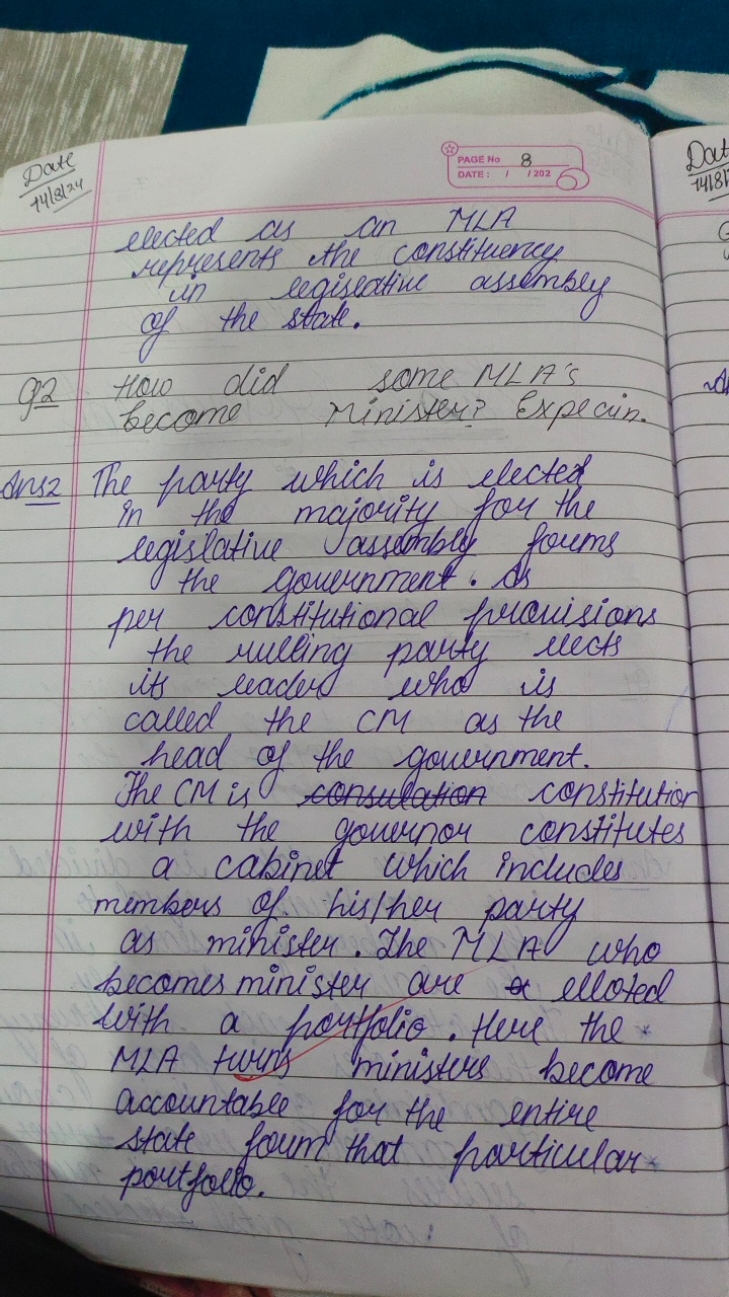 Date
14/8/24
PAGE No 8
DATE : / / 202
elected as an MLA
represents the constituency
in legislative assembly
of the state.
Q2 How did some MLA's
become Minister? Explain.
Ans2 The party which is elected
in the majority for the
legislative assembly forms
the government. As
per constitutional provisions
the rulling party elects
its leader who is
called the CM as the
head of the government.
The CM is consulation constitution
with the governor constitutes
a cabinet which includes
members of his/her party
as minister. The MLA who
becomes minister are elloted
with a portfolio. Here the
MLA turns ministers become
accountable for the entire
state foum that particular
portfolio.
Dat
14/8/